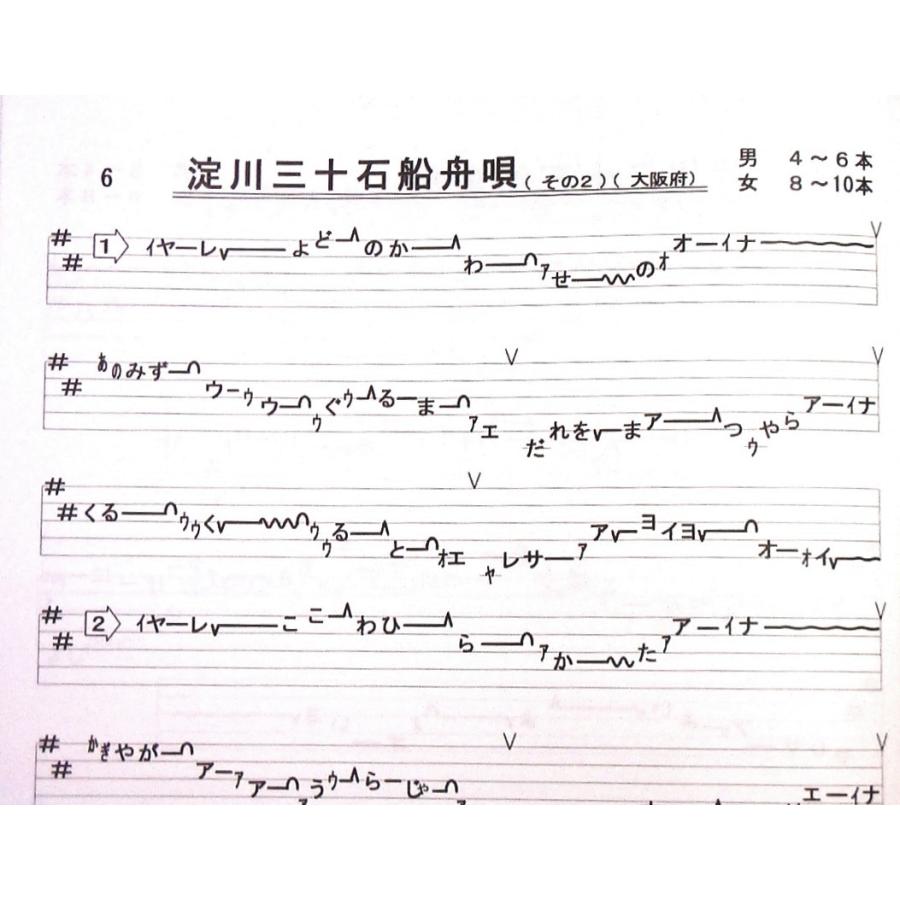 6 淀川三十石船舟唄(その2)(大阪府)
男 4～6本
女 8～10本
1 ィヤーレ よどーのかーわーァせーのォオーイナー
あのみずーウーゥウーゥぐゥーるーまーァエ だれをまアーつゥやらアーイナ
くるーゥゥくーゥゥるーとーォエ ャレサーァアヨイヨーオーォイー
2 ィヤーレ ここーわひーらーァかーたァアーイナー
かぎやがーアーァアーァうゥーらーじゃーァ エーイナ